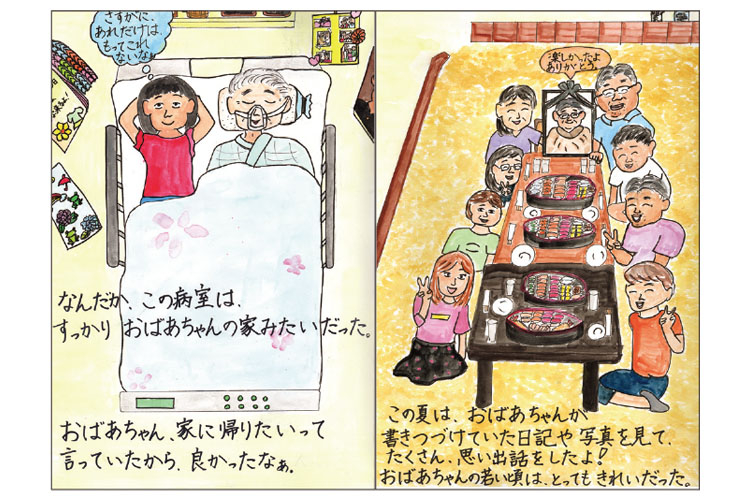 さすがに、
あれだけは、
もってこれ
ないなぁ
なんだか、この病室は、
すっかり おばあちゃんの家みたいだった。
おばあちゃん、家に帰りたいって
言っていたから、良かったなぁ。
楽しかったよ
ありがとう。
この夏は、おばあちゃんが
書きつづけていた日記や 写真を見て、
たくさん、思い出話をしたよ!
おばあちゃんの若い頃は、とってもきれいだった。